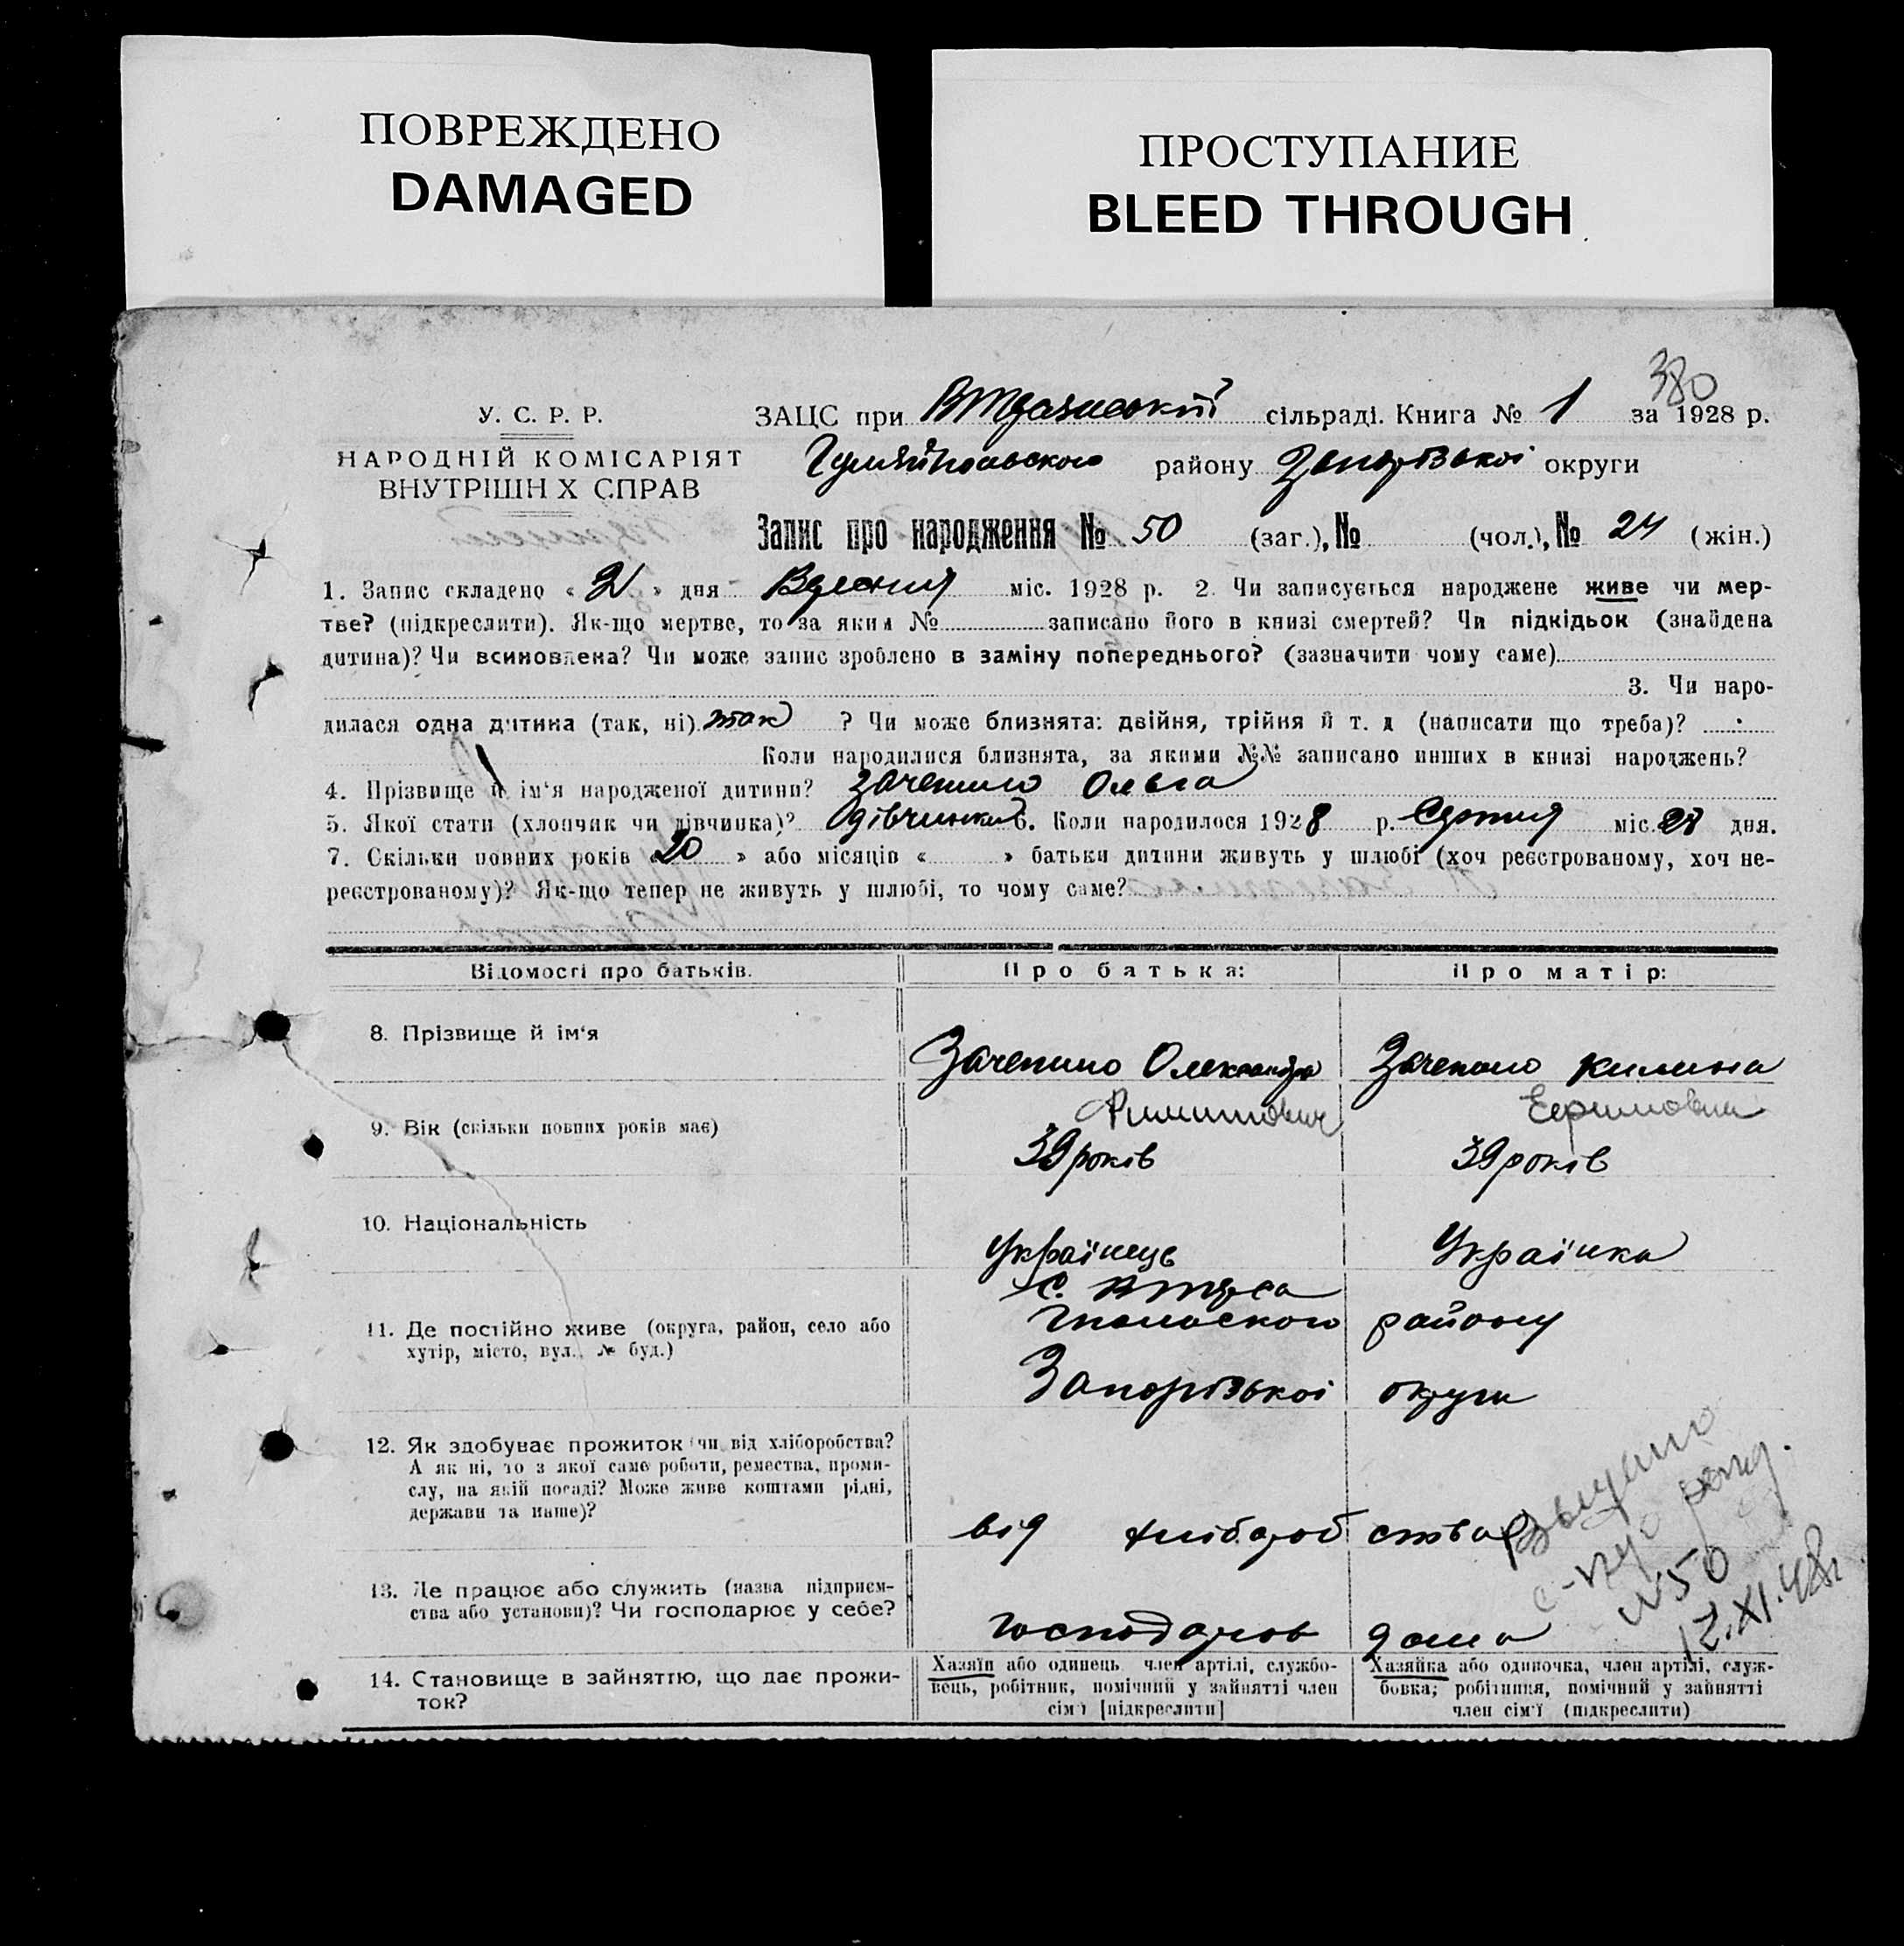 ПОВРЕЖДЕНО
DAMAGED
ПРОСТУПАНИЕ
BLEED THROUGH
380
У. С. Р. Р.
НАРОДНІЙ КОМІСАРІЯТ
ВНУТРІШН Х СПРАВ
ЗАЦС при сільраді. Книга № 1 за 1928 р.
району Запорізької округи
Запис про народження № 50 (заг.), № (чол.), № 24 (жін.)
1. Запис складено « 2 » дня Вересня міс. 1928 р. 2. Чи записується народжене живе чи мер-
тве? (підкреслити). Як-що мертве, то за яким № записано його в книзі смертей? Чи підкідьок (знайдена
дитина)? Чи всиновлена? Чи може запис зроблено в заміну попереднього? (зазначити чому саме)
3. Чи наро-
дилася одна дитина (так, ні) так ? Чи може близнята: двійня, трійня й т. д (написати що треба)?
Коли народилися близнята, за якими №№ записано инших в книзі народжень?
4. Прізвище й ім'я народженої дитини? Зачепило Ольга
5. Якої стати (хлопчик чи дівчинка)? дівчинка 6. Коли народилося 1928 р. Серпня міс. 28 дня.
7. Скільки повних років « 20 » або місяців « » батьки дитини живуть у шлюбі (хоч реєстрованому, хоч не-
реєстрованому)? Як-що тепер не живуть у шлюбі, то чому саме?
Відомості про батьків. Про батька: Про матір:
8. Прізвище й ім'я Зачепило Олександр Зачепило Килина
Єфимовна
9. Вік (скільки повних років має) 39 років 39 років
10. Національність Українець Українка
с.
11. Де постійно живе (округа, район, село або району
хутір, місто, вул., № буд.)
Запорізької округи
12. Як здобуває прожиток чи від хліборобства?
А як ні, то з якої саме роботи, ремества, проми-
слу, на якій посаді? Може живе коштами рідні,
держави та инше)?
від хліборобства
13. Де працює або служить (назва підприєм-
ства або установи)? Чи господарює у себе?
дома
№ 50
12.XI.48г
14. Становище в зайняттю, що дає прожи-
ток?
Хазяїн або одинець член артілі, службо-
вець, робітник, помічний у зайнятті член
сім'ї [підкреслити]
Хазяйка або одиночка, член артілі, служ-
бовка; робітниця, помічний у зайнятті
член сім'ї (підкреслити)